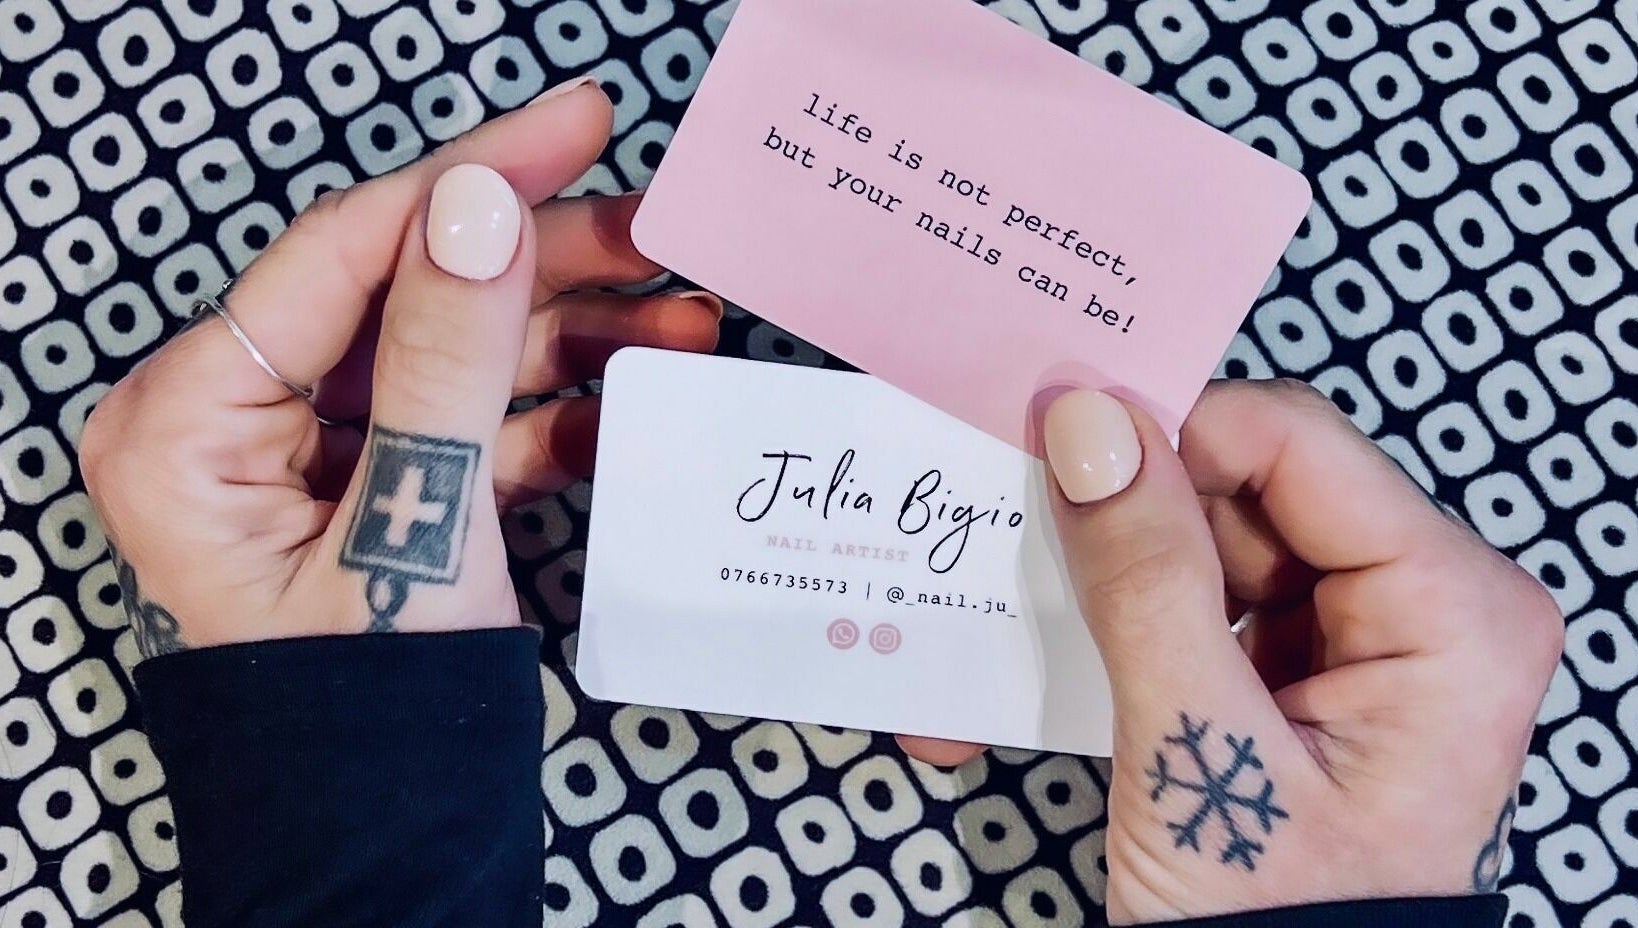 life is not perfect,
but your nails can be!
Julia Bigio
NAIL ARTIST
0766735573 | @_nail.ju_